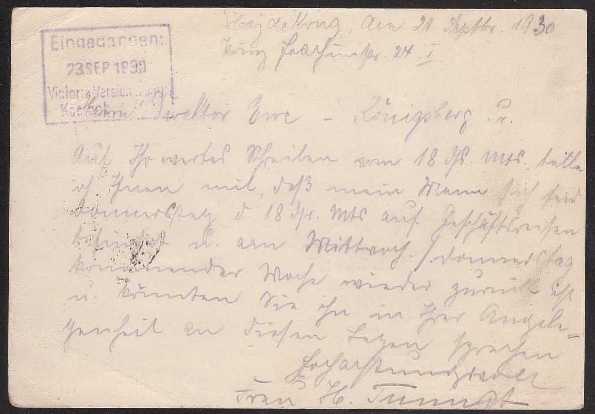 Eingegangen:
23 SEP 1930
Victoria Versich
Heydekrug, den 21 Septbr. 1930
24 I
Herrn Direktor - Königsberg Pr.
Auf Ihr wertes Schreiben vom 18 ds Mts. teile
ich Ihnen mit, daß mein Mann sich seit
Donnerstag d 18 ds. Mts auf Geschäftsreisen
befindet u. am Mittwoch / Donnerstag
kommender Woche wieder zurück ist
u. könnten Sie ihn in Ihrer Angele-
genheit an diesen Tagen sprechen
Hochachtungsvoll
Frau H.